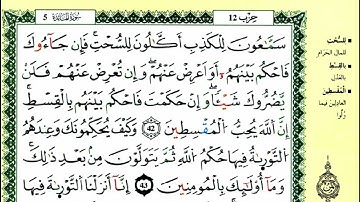 حزب 12
سورة المائدة
5
سَمَّٰعُونَ لِلۡكَذِبِ أَكَّٰلُونَ لِلسُّحۡتِۚ فَإِن جَآءُوكَ
فَٱحۡكُم بَيۡنَهُمُۥٓ أَوَ اَعۡرِضۡ عَنۡهُمۡۖ وَإِن تُعۡرِضۡ عَنۡهُمۡ فَلَن
يَّضُرُّوكَ شَيۡـٔٗاۖ وَإِنۡ حَكَمۡتَ فَٱحۡكُم بَيۡنَهُم بِٱلۡقِسۡطِۚ
إِنَّ ٱللَّهَ يُحِبُّ ٱلۡمُقۡسِطِينَ 42 وَكَيۡفَ يُحَكِّمُونَكَ وَعِندَهُمُ
ٱلتَّوۡرَىٰةُ فِيهَا حُكۡمُ ٱللَّهِ ثُمَّ يَتَوَلَّوۡنَ مِنۢ بَعۡدِ ذَٰلِكَۚ
وَمَآ أُوْلَٰٓئِكَ بِالۡمُومِنِينَ 43 إِنَّآ أَنزَلۡنَا ٱلتَّوۡرَىٰةَ فِيهَا
للسحت
للمال الحرام
بالقسط
بالعدل
المقسطين
العادلين فيما